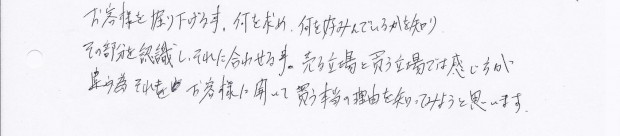 お客様を掘り下げる事。何を求め、何を好んでいるかを知り
その部分を認識し、それに合わせる事。売る立場と買う立場では感じ方が
違う為それを お客様に聞いて買う本当の理由を知ってみようと思います。